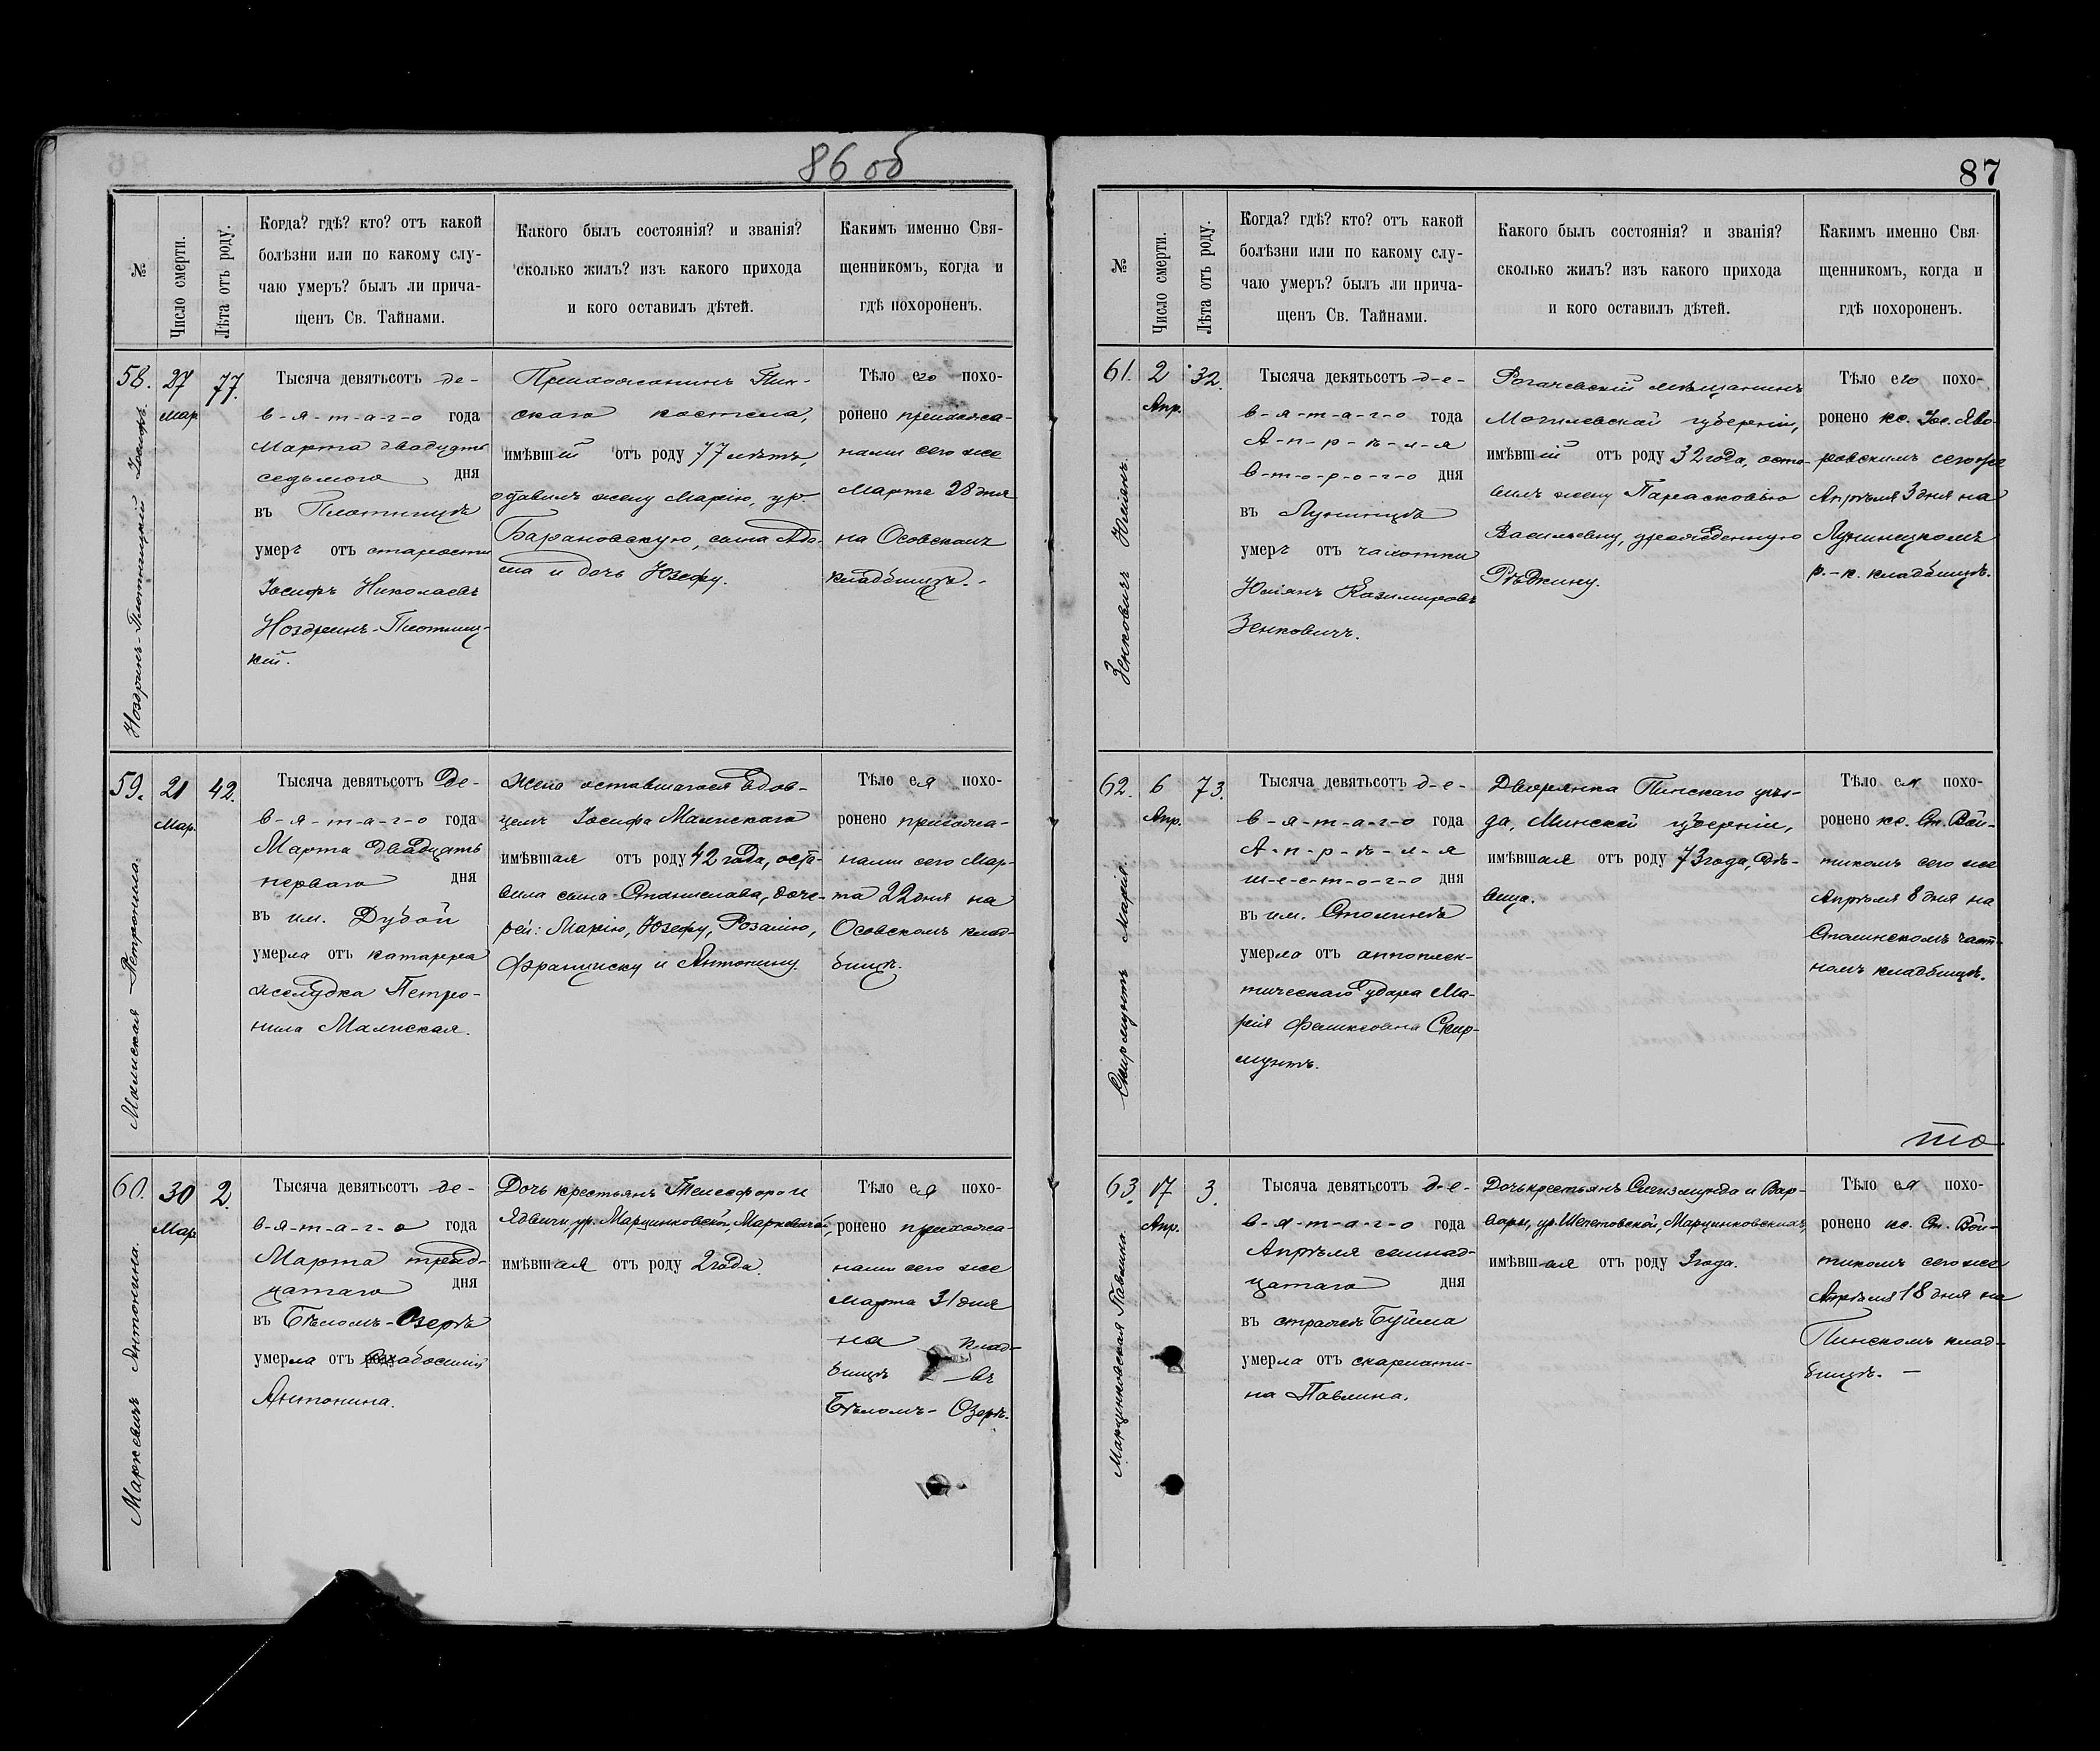 86 об
№
Число смерти.
Лѣта отъ роду.
Когда? гдѣ? кто? отъ какой
болѣзни или по какому слу-
чаю умеръ? былъ ли прича-
щенъ Св. Тайнами.
Какого былъ состоянія? и званія?
сколько жилъ? изъ какого прихода
и кого оставилъ дѣтей.
Какимъ именно Свя-
щенникомъ, когда и
гдѣ похороненъ.
58.
Ноздринъ-Плотницкій Іосифъ.
27
Мар
77.
Тысяча девятьсотъ де-
в-я-т-а-г-о года
Марта двадцать
седьмого дня
въ Плотницѣ
умеръ отъ старости
Іосифъ Николаевъ
Ноздринъ-Плотниц-
кій.
Прихожанинъ Пин-
скаго костела,
имѣвшій отъ роду 77 лѣтъ,
оставилъ жену Марію, ур.
Барановскую, сына Адо-
ма и дочь Юзефу.
Тѣло его похо-
ронено прихожа-
нами сего же
Марта 28 дня
на Осовскомъ
кладбищѣ.-
59.
Малиская Петронила.
21
Мар.
42.
Тысяча девятьсотъ де-
в-я-т-а-г-о года
Марта двадцать
перваго дня
въ им. Дубой
умерла отъ катарра
желудка Петро-
нила Малиская.
Жена оставшагося вдов-
цемъ Іосифа Малискаго
имѣвшая отъ роду 42 года, оста-
вила сына Станислава, доче-
рей: Марію, Юзефу, Розалію,
Францишку и Антонину.
Тѣло ея похо-
ронено прихожа-
нами сего Мар-
та 22 дня на
Осовскомъ клад-
бищѣ.
60.
Маркевичъ Антонина.
30
Мар
2.
Тысяча девятьсотъ де-
в-я-т-а-г-о года
Марта трид-
цатаго дня
въ Бѣломъ-Озерѣ
умерла отъ слабосилія
Антонина.
Дочь крестьянъ Телесфора и
Ядвиги, ур. Марцинковской, Маркевичей,
имѣвшая отъ роду 2 года.
Тѣло ея похо-
ронено прихожа-
нами сего же
Марта 31 дня
на клад-
бищѣ въ
Бѣломъ-Озерѣ.
87
№
Число смерти.
Лѣта отъ роду.
Когда? гдѣ? кто? отъ какой
болѣзни или по какому слу-
чаю умеръ? былъ ли прича-
щенъ Св. Тайнами.
Какого былъ состоянія? и званія?
сколько жилъ? изъ какого прихода
и кого оставилъ дѣтей.
Какимъ именно Свя-
щенникомъ, когда и
гдѣ похороненъ.
61.
Зенковичъ Юліянъ.
2
Апр.
32.
Тысяча девятьсотъ д-е-
в-я-т-а-г-о года
А-п-р-ѣ-л-я
в-т-о-р-о-г-о дня
въ Лунинцѣ
умеръ отъ чахотки
Юліянъ Казимировъ
Зенковичъ.
Рогачевскій мѣщанинъ
Могилевской губерніи,
имѣвшій отъ роду 32 года, оста-
вилъ жену Парасковію
Васильевну, урожденную
Рѣдкину.
Тѣло его похо-
ронено кс. Іос. Яво-
ровскимъ сего же
Апрѣля 3 дня на
Лунинецкомъ
р.-к. кладбищѣ.
62.
Скирмунтъ Марія.
6
Апр.
73.
Тысяча девятьсотъ д-е-
в-я-т-а-г-о года
А-п-р-ѣ-л-я
ш-е-с-т-о-г-о дня
въ им. Столинѣ
умерла отъ апоплек-
тическаго удара Ма-
рія Феликсовна Скир-
мунтъ.
Дворянка Пинскаго уѣз-
да, Минской губерніи,
имѣвшая отъ роду 73 года, дѣ-
вица.
Тѣло ея похо-
ронено кс. Ст. Вой-
тикомъ сего же
Апрѣля 8 дня на
Столинскомъ част-
номъ кладбищѣ.
63.
Марцинковская Павлина.
17
Апр.
3.
Тысяча девятьсотъ д-е-
в-я-т-а-г-о года
Апрѣля семнад-
цатаго дня
въ стражѣ Буйма
умерла отъ скарлати-
на Павлина.
Дочь крестьянъ Сигизмунда и Вар-
вары, ур. Шепетовской, Марцинковскихъ,
имѣвшая отъ роду 3 года.
Тѣло ея похо-
ронено кс. Ст. Вой-
тикомъ сего же
Апрѣля 18 дня на
Пинскомъ клад-
бищѣ. —